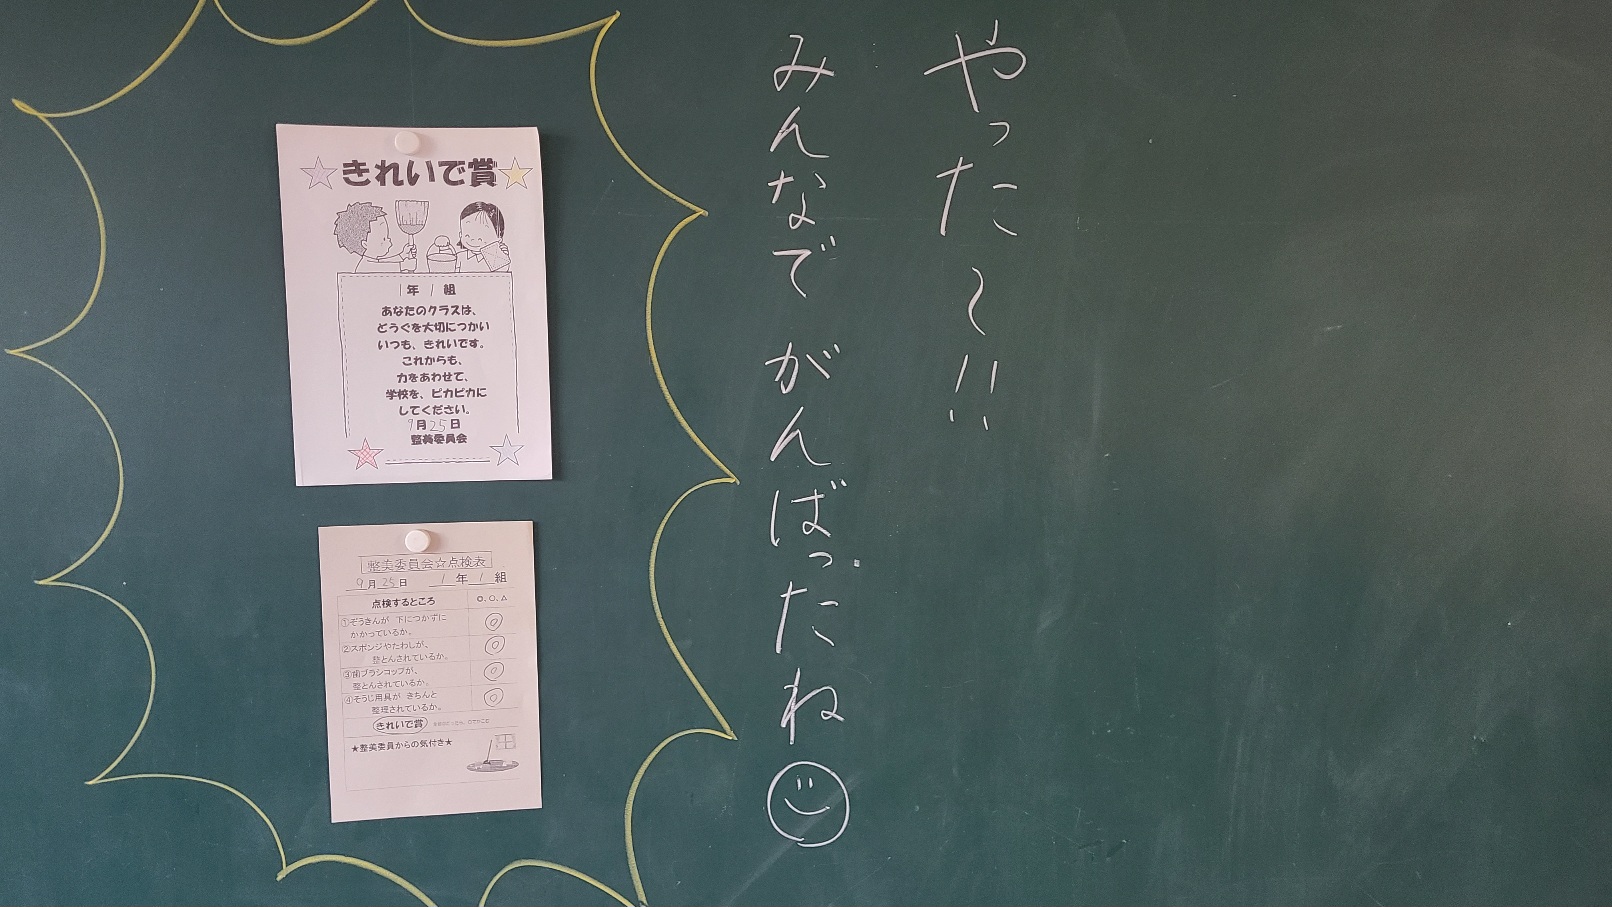 やった～!!
みんなで がんばったね
きれいで賞
1年 1組
あなたのクラスは、
どうぐを大切につかい
いつも、きれいです。
これからも、
力をあわせて、
学校を、ピカピカに
してください。
9月25日
整美委員会
整美委員会☆点検表
9月25日 1年1組
点検するところ ◎、○、△
①ぞうきんが 下につかずに
かかっているか。 ◎
②スポンジやたわしが、
整とんされているか。 ◎
③歯ブラシコップが、
整とんされているか。 ◎
④そうじ用具が きちんと
整理されているか。 ◎
きれいで賞
★整美委員からの気付き★